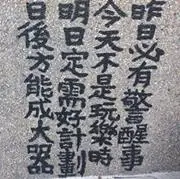 昨日必有警醒事
今天不是玩樂時
明日定需好計劃
日後方能成大器